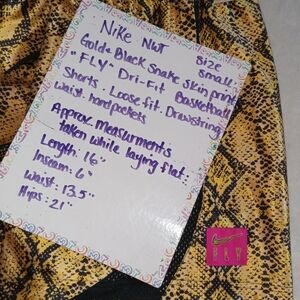 Nike NWT Size
Gold + Black Snake skin print Small
"FLY" Dri-Fit Basketball
Shorts. Loose fit. Drawstring
waist. hand pockets
Approx. Measurments
taken while laying flat.
Length: 16"
Inseam: 6"
Waist: 13.5"
Hips: 21"
FLY